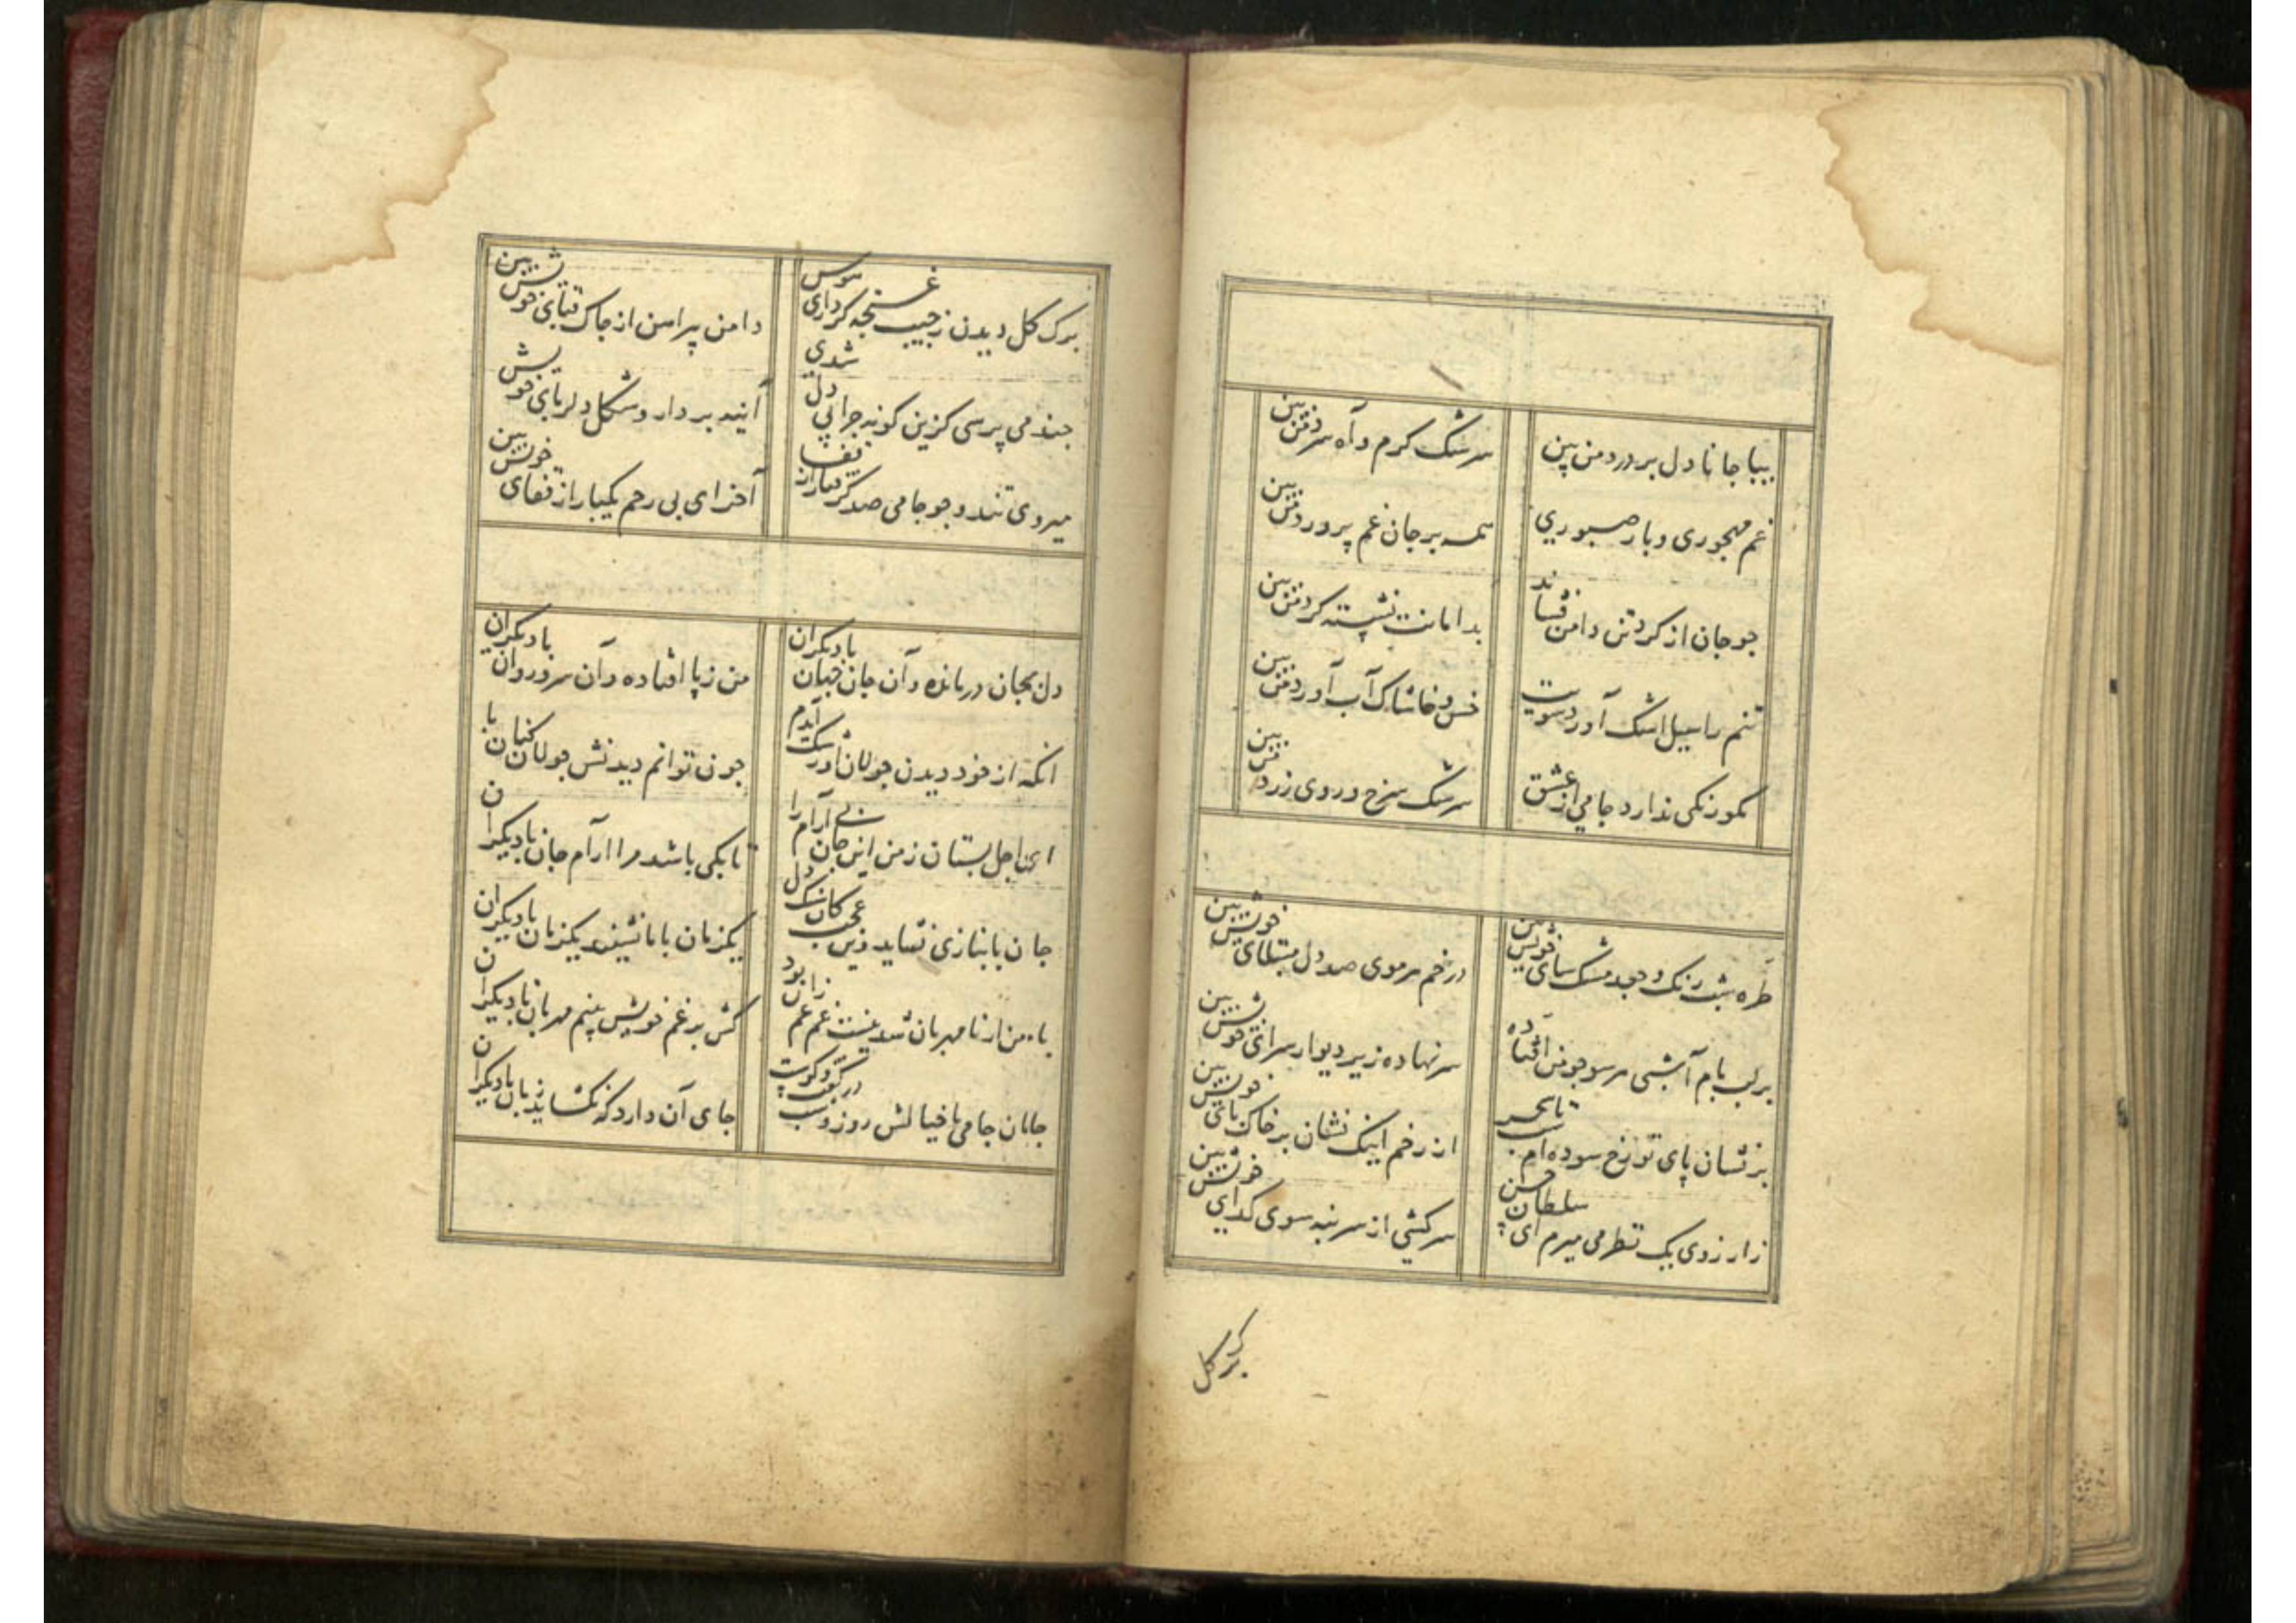 بیا جانا دل بر درد من بین
سرشک کرم و آه سرد من بین
غم مهجوری و بار صبوری
همه بر جان غم پرورد من بین
جو جان از کرد تن دامن فشاند
بدامانت نشسته کرد من بین
تنم را سیل اشک آورد سویت
خس و خاشاک آب آورد من بین
مکو رنکی ندارد جامی از عشق
سرشک سرخ و روی زرد من بین
طره شب رنک و جعد مشک سای خویش بین
در خم هر موی صد دل مبتلای خویش بین
بر لب بام آ شبی هر سو جو من افتاده
سر نهاده زیر دیوار سرای خویش بین
بر نشان پای تو رخ سوده ام شب تا سحر
از رخم اینک نشان بر خاک پای خویش بین
ز ارزوی یک نظر می میرم ای سلطان حسن
سرکشی از سر بنه سوی کدای خویش بین
برک کل
برک کل دیدن ز جیب غنجه کر داری هوس
دامن پیراهن از جاک قبای خویش بین
جند می پرسی کزین کونه جرا بی دل شدی
آینه بردار و شکل دلربای خویش بین
میروی تند و جو جامی صد کرفتار از قفا
آخر ای بی رحم یکبار از قفای خویش بین
دل بجان درمانده و آن جان جهان با دیکران
من ز پا افتاده و آن سرو روان با دیکران
انکه از خود دیدن جولان او رشک آیدم
جون توانم دیدنش جولان کنان با دیکران
ای اجل بستان ز من این جان بی آرام را
تا بکی باشد مرا آرام جان با دیکران
جان با بنازی نساید زین عجب کان سنک دل
یکزمان با ما نشیند یکزمان با دیکران
با من ار نا مهربان شد نیست غم غم زان بود
کش بر غم خویش بینم مهربان با دیکران
جانان جامی با خیالش روز و شب در کفت و کوست
جای آن دارد که نکشاید زبان با دیکران